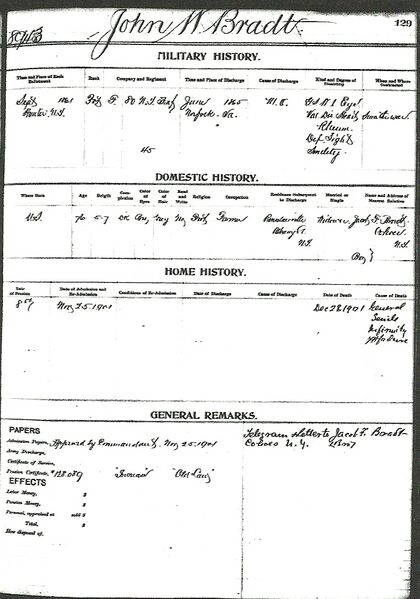 John W. Bradt
129
MILITARY HISTORY.
Time and Place of Each Enlistment
Rank
Company and Regiment
Time and Place of Discharge
Cause of Discharge
Kind and Degree of Disability
When and Where Contracted
Sept 1861
N.Y.
F. 80 N.Y.
June 1865
Norfolk Va.
M.O.
Rheum
Def Sight
Senility
45
DOMESTIC HISTORY.
Where Born
Age
Heigth
Complexion
Color of Eyes
Color of Hair
Read and Write
Religion
Occupation
Residence Subsequent to Discharge
Married or Single
Name and Address of Nearest Relative
76 5-7
Gray
Prot
Farmer
Albany Co.
N.Y.
Widower
Jacob F. Bradt
Cohoes
N.Y.
HOME HISTORY.
Rate of Pension
Date of Admission and Re-Admission
Conditions of Re-Admission
Date of Discharge
Cause of Discharge
Date of Death
Cause of Death
Nov 25-1901
Dec 28 1901
General
Senile
GENERAL REMARKS.
PAPERS
Admission Papers, Approved by Commandant, Nov 25-1901
Army Discharge,
Certificate of Service,
Pension Certificate, "Invalid" "Old Law"
EFFECTS
Labor Money, $
Pension Money, $
Personal, appraised at sold $
Total, $
How disposed of.
Telegram & letter to Jacob F. Bradt
Cohoes N.Y.